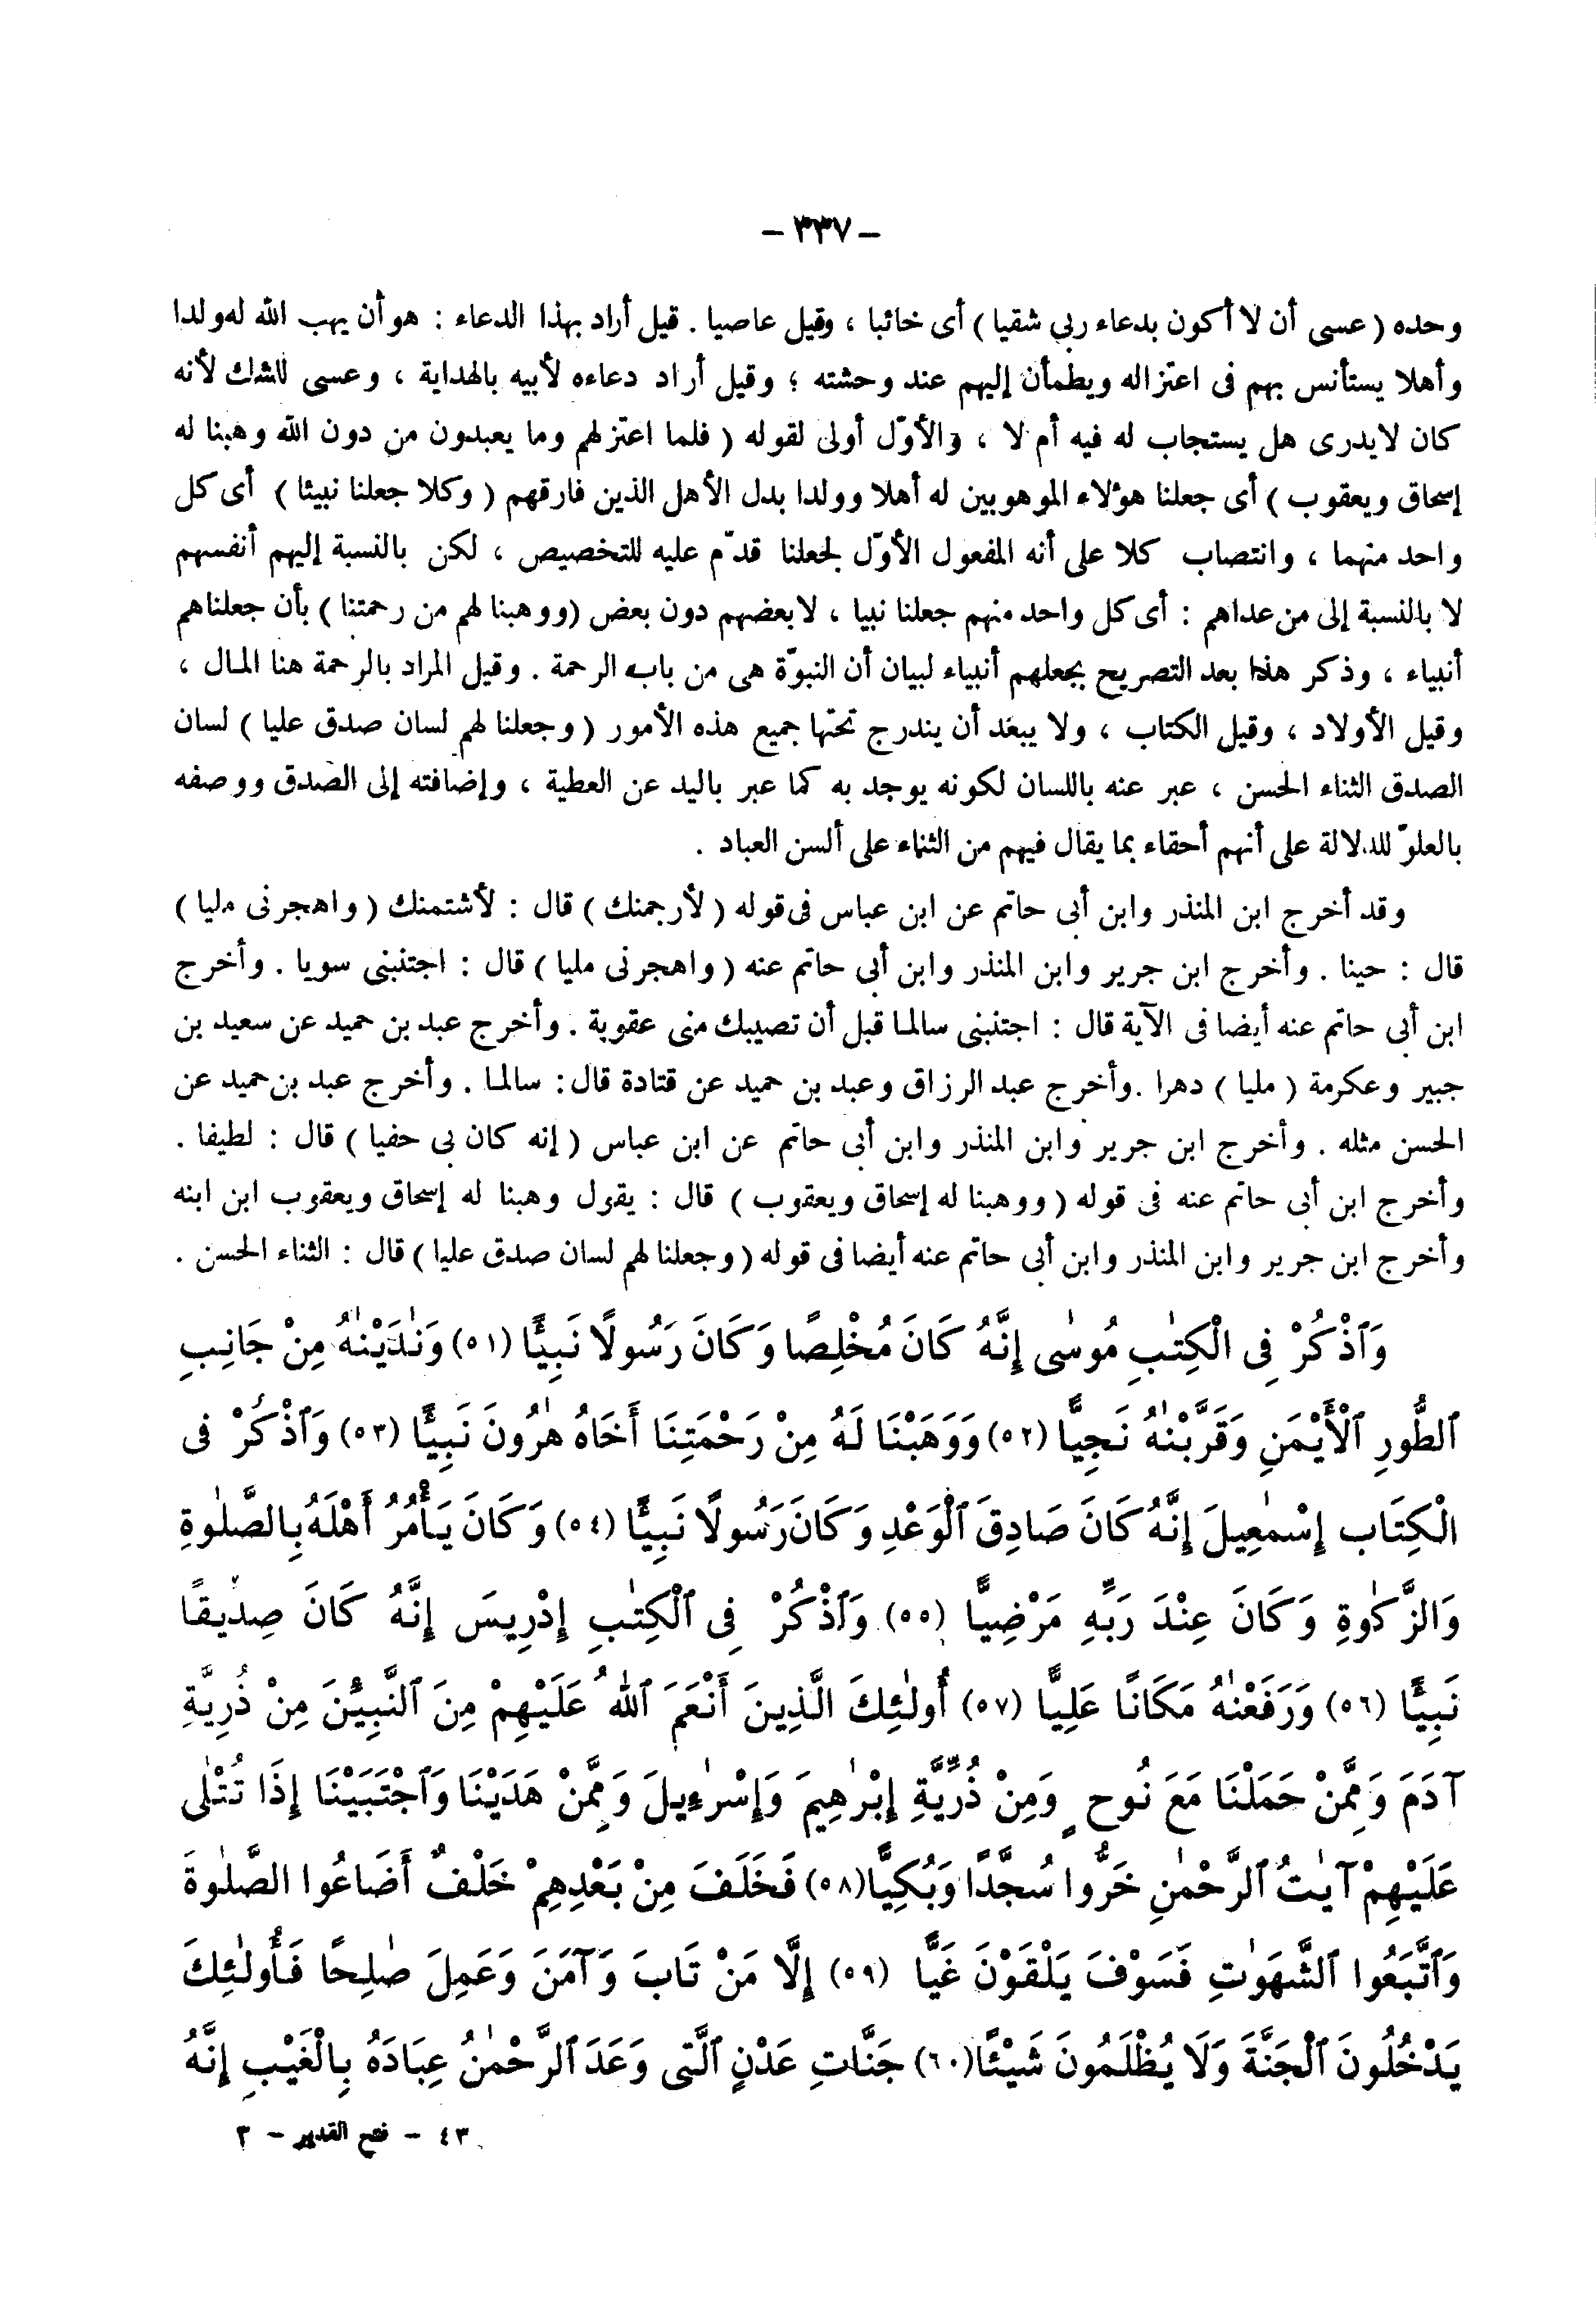 – ٣٣٧ –
وحده ( عسى أن لا أكون بدعاء ربى شقيا ) أى خائبا ، وقيل عاصيا . قيل أراد بهذا الدعاء : هو أن يهب الله له ولدا
وأهلا يستأنس بهم فى اعتزاله ويطمأن إليهم عند وحشته ؛ وقيل أراد دعاءه لأبيه بالهداية ، وعسى للشك لأنه
كان لايدرى هل يستجاب له فيه أم لا ، والأوّل أولى لقوله ( فلما اعتزلهم وما يعبدون من دون الله وهبنا له
إسحاق ويعقوب ) أى جعلنا هؤلاء الموهوبين له أهلا وولدا بدل الأهل الذين فارقهم ( وكلا جعلنا نبيئا ) أى كل
واحد منهما ، وانتصاب كلا على أنه المفعول الأوّل لجعلنا قدّم عليه للتخصيص ، لكن بالنسبة إليهم أنفسهم
لا بالنسبة إلى من عداهم : أى كل واحد منهم جعلنا نبيا ، لابعضهم دون بعض (ووهبنا لهم من رحمتنا ) بأن جعلناهم
أنبياء ، وذكر هذا بعد التصريح بجعلهم أنبياء لبيان أن النبوّة هى من باب الرحمة . وقيل المراد بالرحمة هنا المال ،
وقيل الأولاد ، وقيل الكتاب ، ولا يبعد أن يندرج تحتها جميع هذه الأمور ( وجعلنا لهم لسان صدق عليا ) لسان
الصدق الثناء الحسن ، عبر عنه باللسان لكونه يوجد به كما عبر باليد عن العطية ، وإضافته إلى الصدق ووصفه
بالعلوّ للدلالة على أنهم أحقاء بما يقال فيهم من الثناء على ألسن العباد .
وقد أخرج ابن المنذر وابن أبى حاتم عن ابن عباس فى قوله ( لأرجمنك ) قال : لأشتمنك ( واهجرنى مليا )
قال : حينا . وأخرج ابن جرير وابن المنذر وابن أبى حاتم عنه ( واهجرنى مليا ) قال : اجتنبنى سويا . وأخرج
ابن أبى حاتم عنه أيضا فى الآية قال : اجتنبنى سالما قبل أن تصيبك منى عقوبة . وأخرج عبد بن حميد عن سعيد بن
جبير وعكرمة ( مليا ) دهرا . وأخرج عبد الرزاق وعبد بن حميد عن قتادة قال : سالما . وأخرج عبد بن حميد عن
الحسن مثله . وأخرج ابن جرير وابن المنذر وابن أبى حاتم عن ابن عباس ( إنه كان بى حفيا ) قال : لطيفا .
وأخرج ابن أبى حاتم عنه فى قوله ( ووهبنا له إسحاق ويعقوب ) قال : يقول وهبنا له إسحاق ويعقوب ابن ابنه
وأخرج ابن جرير وابن المنذر وابن أبى حاتم عنه أيضا فى قوله ( وجعلنا لهم لسان صدق عليا ) قال : الثناء الحسن .
وَٱذْكُرْ فِى الْكِتٰبِ مُوسٰى إِنَّهُ كَانَ مُخْلِصًا وَكَانَ رَسُولًا نَبِيًّا (٥١) وَنٰدَيْنٰهُ مِنْ جَانِبِ
ٱلطُّورِ ٱلْأَيْمَنِ وَقَرَّبْنٰهُ نَجِيًّا (٥٢) وَوَهَبْنَا لَهُ مِنْ رَحْمَتِنَا أَخَاهُ هٰرُونَ نَبِيًّا (٥٣) وَٱذْكُرْ فِى
الْكِتَابِ إِسْمٰعِيلَ إِنَّهُ كَانَ صَادِقَ ٱلْوَعْدِ وَكَانَ رَسُولًا نَبِيًّا (٥٤) وَكَانَ يَأْمُرُ أَهْلَهُ بِالصَّلٰوةِ
وَالزَّكٰوةِ وَكَانَ عِنْدَ رَبِّهِ مَرْضِيًّا (٥٥) وَٱذْكُرْ فِى ٱلْكِتٰبِ إِدْرِيسَ إِنَّهُ كَانَ صِدِّيقًا
نَبِيًّا (٥٦) وَرَفَعْنٰهُ مَكَانًا عَلِيًّا (٥٧) أُولٰئِكَ الَّذِينَ أَنْعَمَ ٱللهُ عَلَيْهِمْ مِنَ ٱلنَّبِيِّۦنَ مِنْ ذُرِيَّةِ
آدَمَ وَمِمَّنْ حَمَلْنَا مَعَ نُوحٍ وَمِنْ ذُرِّيَّةِ إِبْرٰهِيمَ وَإِسْرٰءِيلَ وَمِمَّنْ هَدَيْنَا وَٱجْتَبَيْنَا إِذَا تُتْلٰى
عَلَيْهِمْ آيٰتُ ٱلرَّحْمٰنِ خَرُّوا سُجَّدًا وَبُكِيًّا (٥٨) فَخَلَفَ مِنْ بَعْدِهِمْ خَلْفٌ أَضَاعُوا الصَّلٰوةَ
وَٱتَّبَعُوا ٱلشَّهَوٰتِ فَسَوْفَ يَلْقَوْنَ غَيًّا (٥٩) إِلَّا مَنْ تَابَ وَآمَنَ وَعَمِلَ صٰلِحًا فَأُولٰئِكَ
يَدْخُلُونَ ٱلْجَنَّةَ وَلَا يُظْلَمُونَ شَيْئًا (٦٠) جَنَّاتِ عَدْنٍ ٱلَّتِى وَعَدَ ٱلرَّحْمٰنُ عِبَادَهُ بِالْغَيْبِ إِنَّهُ
٤٣ – فتح القدير – ٣